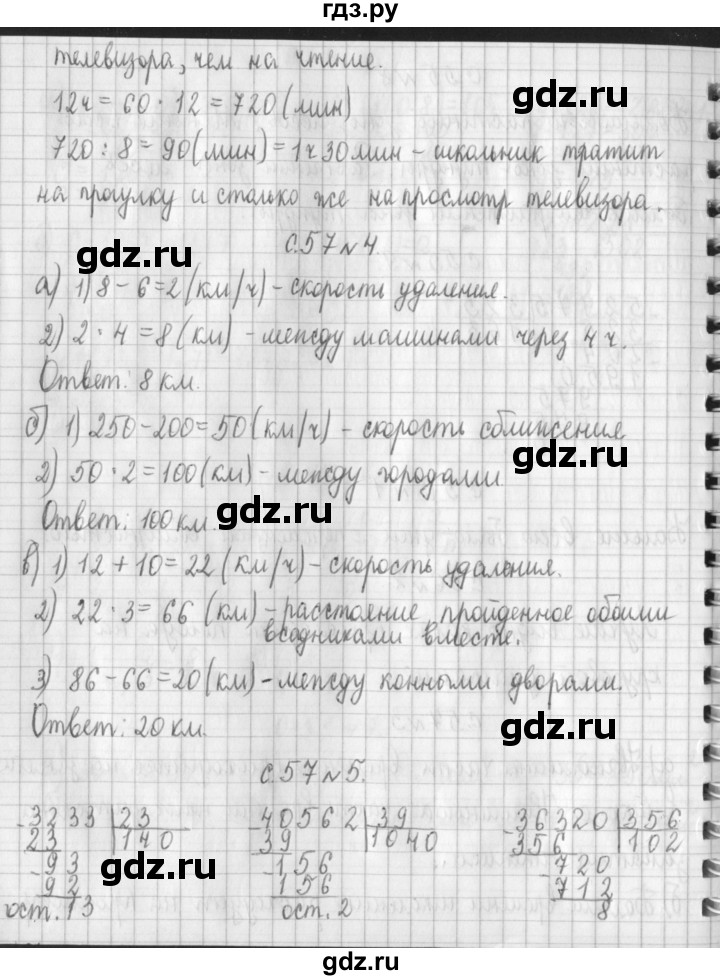 гдз.ру
телевизора, чем на чтение.
12ч = 60 · 12 = 720 (мин)
720 : 8 = 90 (мин) = 1ч 30 мин – школьник тратит
на прогулку и столько же на просмотр телевизора.
с.57 №4
gdz.ru gdz.ru
а) 1) 8 – 6 = 2 (км/ч) – скорость удаления.
2) 2 · 4 = 8 (км) – между машинами через 4 ч.
Ответ: 8 км.
б) 1) 250 – 200 = 50 (км/ч) – скорость сближения
2) 50 · 2 = 100 (км) – между городами.
gdz.ru
Ответ: 100 км.
gdz.ru
в) 1) 12 + 10 = 22 (км/ч) – скорость удаления.
2) 22 · 3 = 66 (км) – расстояние, пройденное обоими
всадниками вместе.
3) 86 – 66 = 20 (км) – между конными дворами.
Ответ: 20 км.
gdz.ru
с.57 №5.
3233 23 40562 39 36320 356
23 140 39 1040 356 102
93 156 720
92 156 712
ост. 13 ост. 2 8
gdz.ru
gdz.ru
gdz.ru
gdz.ru